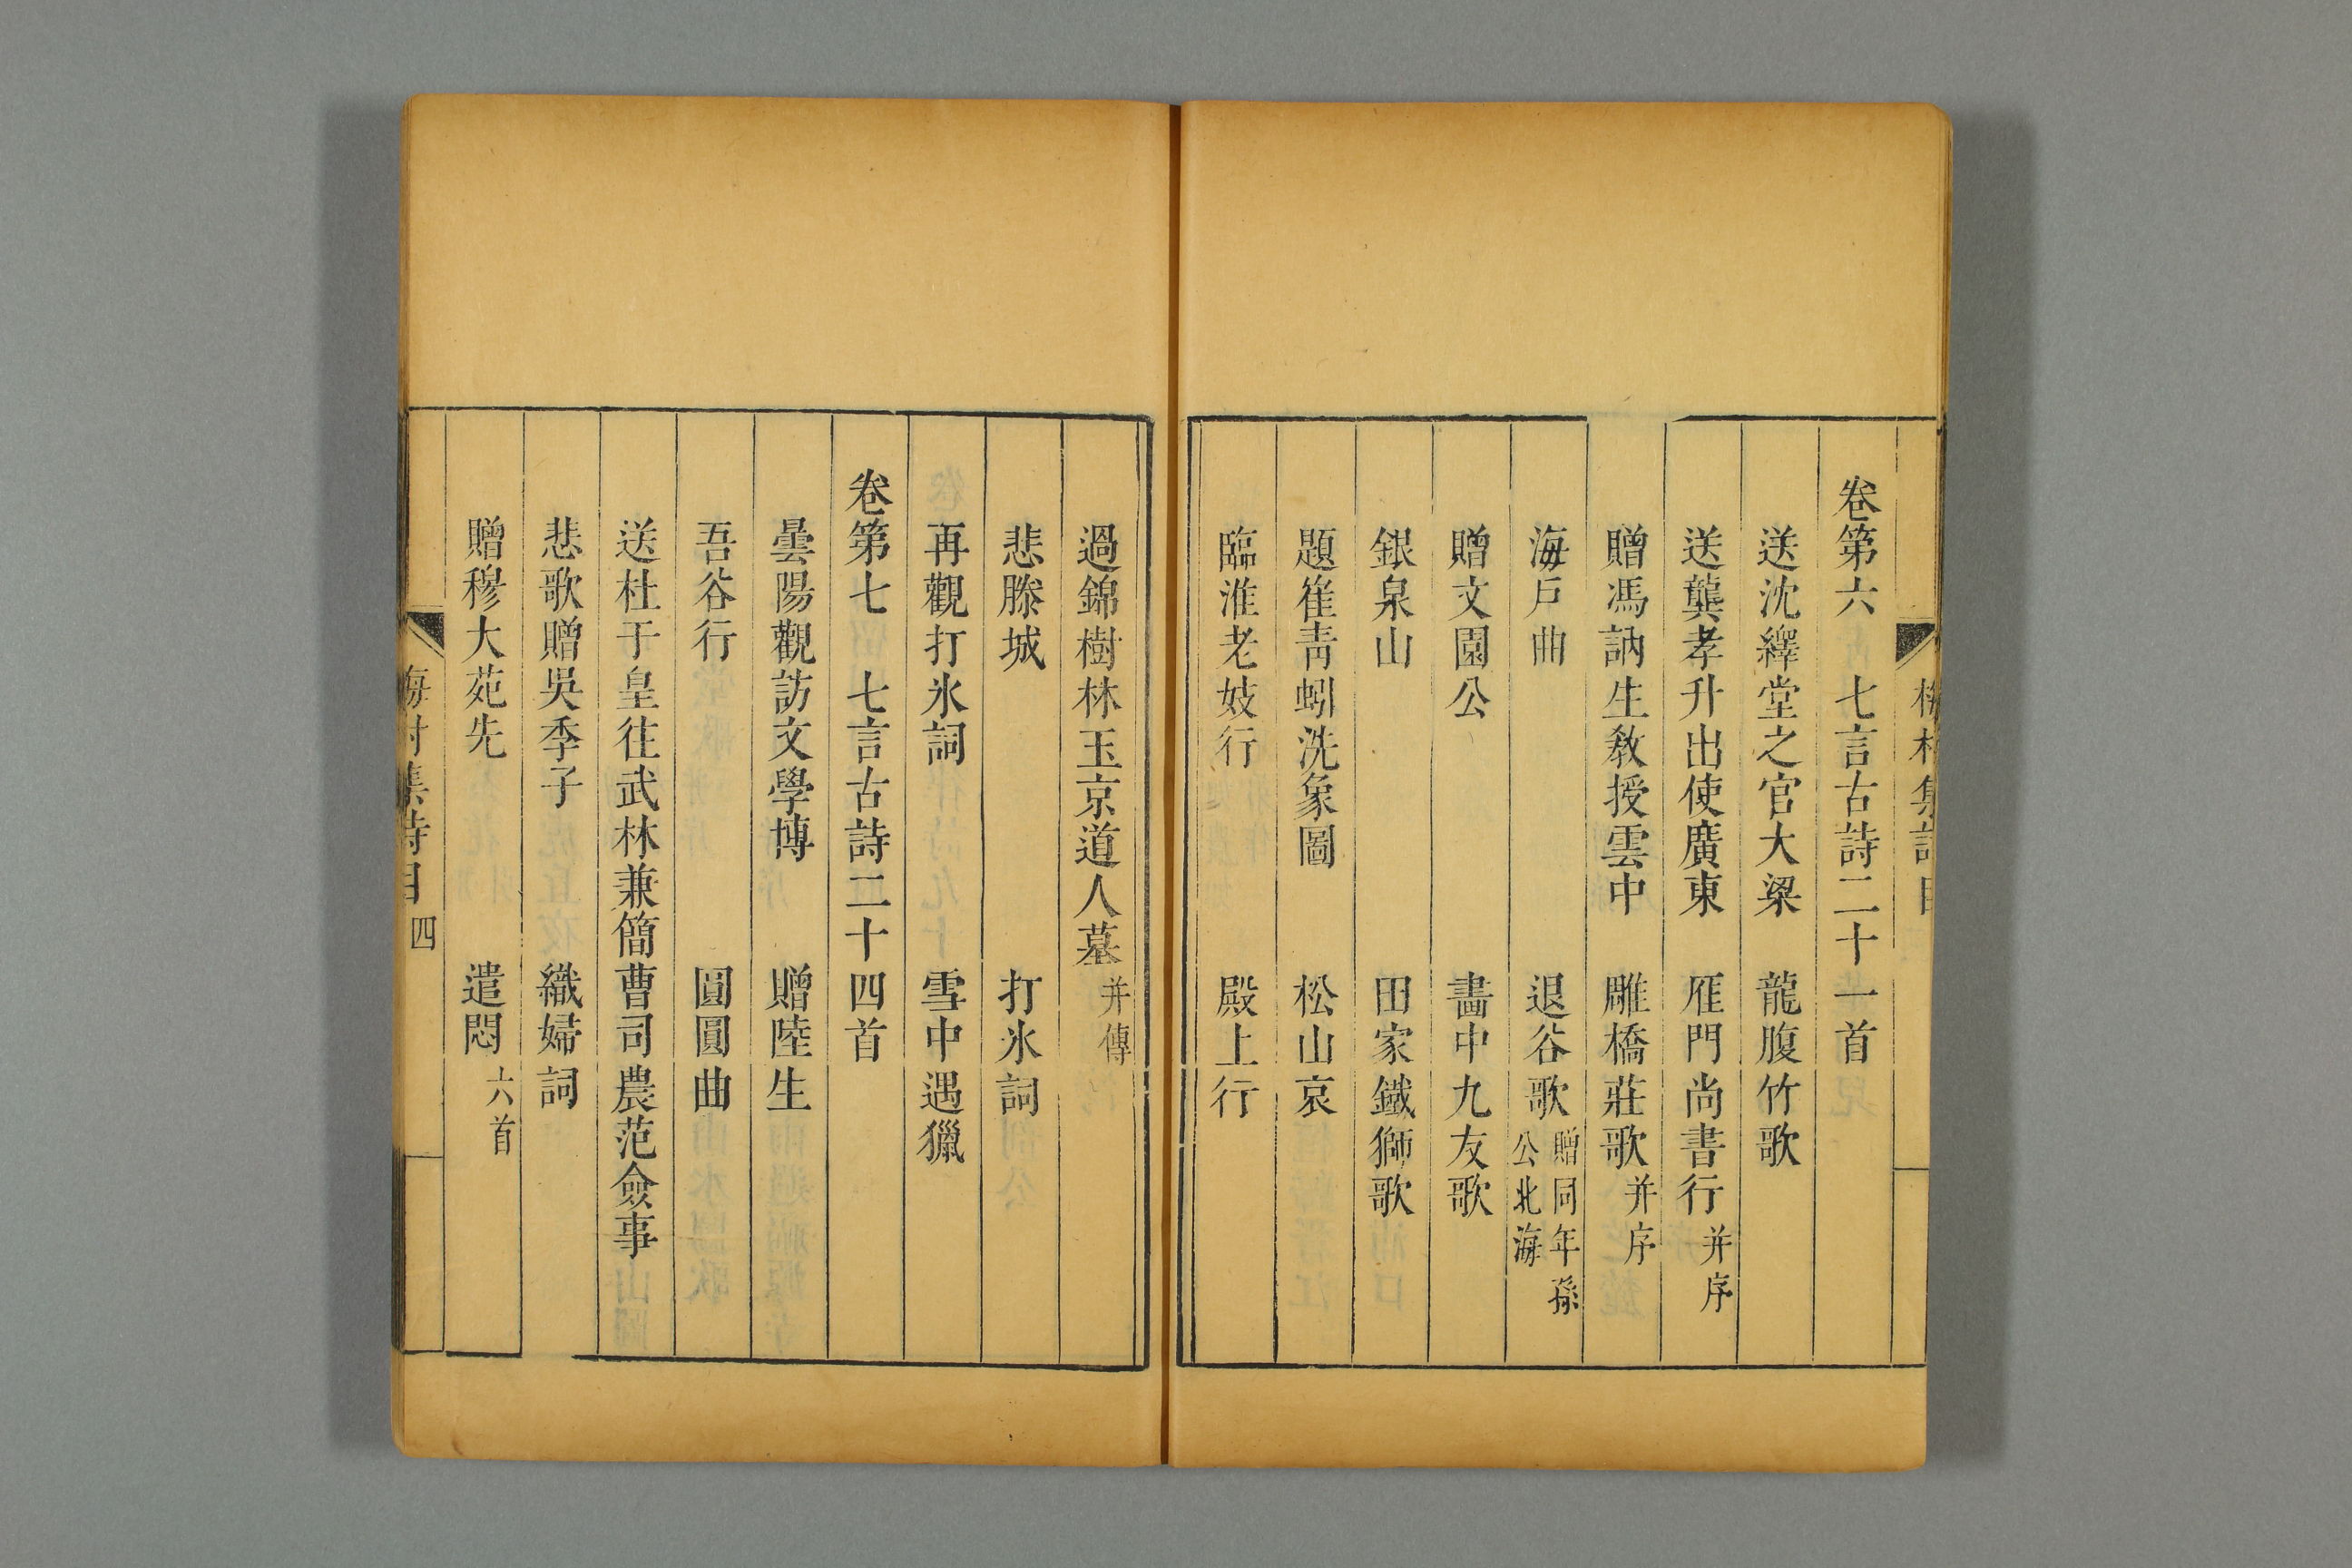 卷第六　七言古詩二十一首
送沈繹堂之官大梁　龍腹竹歌
送龔孝升出使廣東　雁門尚書行并序
贈馮訥生敎授雲中　雕橋莊歌并序
海戶曲　退谷歌贈同年孫公北海
贈文園公　畫中九友歌
銀泉山　田家鐵獅歌
題崔靑蚓洗象圖　松山哀
臨淮老妓行　殿上行
過錦樹林玉京道人墓并傳
悲滕城　打氷詞
再觀打氷詞　雪中遇獵
卷第七　七言古詩二十四首
曇陽觀訪文學博　贈陸生
吾谷行　圓圓曲
送杜于皇往武林兼簡曹司農范僉事
悲歌贈吳季子　織婦詞
贈穆大苑先　遣悶六首
梅村集詩目　四